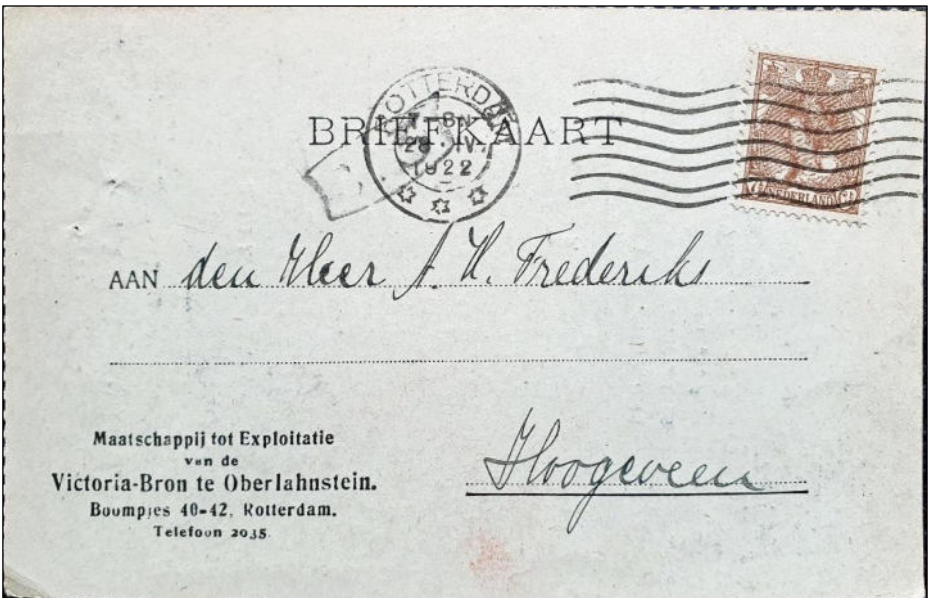 ROTTERDAM
7-8N
28.IV.
1922
BRIEFKAART
NEDERLAND
AAN den Heer A. H. Frederiks
Hoogeveen
Maatschappij tot Exploitatie
van de
Victoria-Bron te Oberlahnstein.
Boompjes 40-42, Rotterdam.
Telefoon 2035.